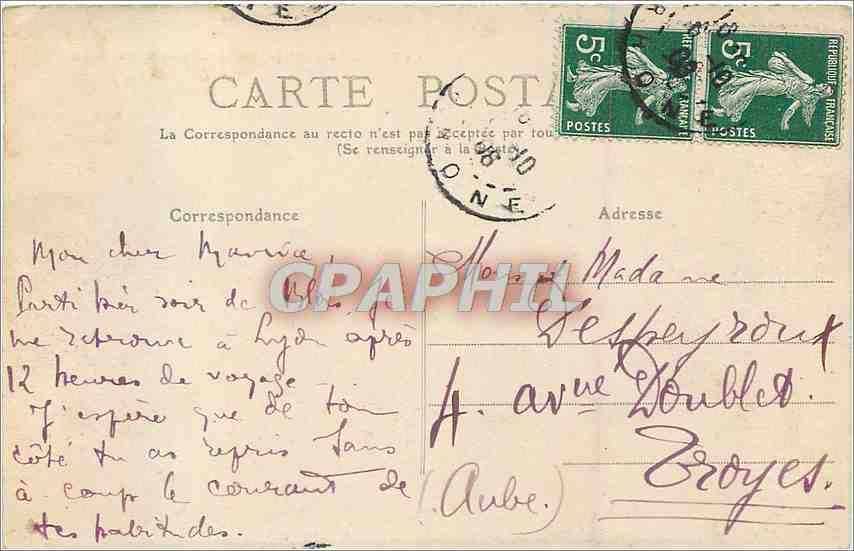 CARTE POSTA
La Correspondance au recto n'est pas acceptée par tou
(Se renseigner à la Poste)
5c
REPUBLIQUE FRANÇAISE
POSTES
5c
REPUBLIQUE FRANÇAISE
POSTES
ONE
Correspondance
Mon cher Maurice,
Parti hier soir de Blois, je
me retrouve à Lyon après
12 heures de voyage
J'espère que de ton
côté tu as repris sans
à coup le courant de
tes habitudes.
Adresse
Mons. Madame
Despeyroux
4. avnue Doublet.
Troyes.
(Aube.)
CPAPHIL